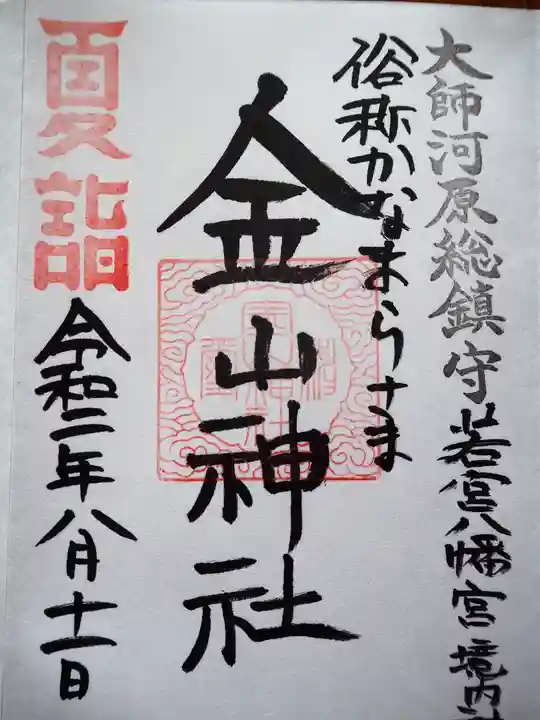 大師河原総鎮守若宮八幡宮境内
俗称かなまらさま
金山神社
夏詣
令和二年八月十一日